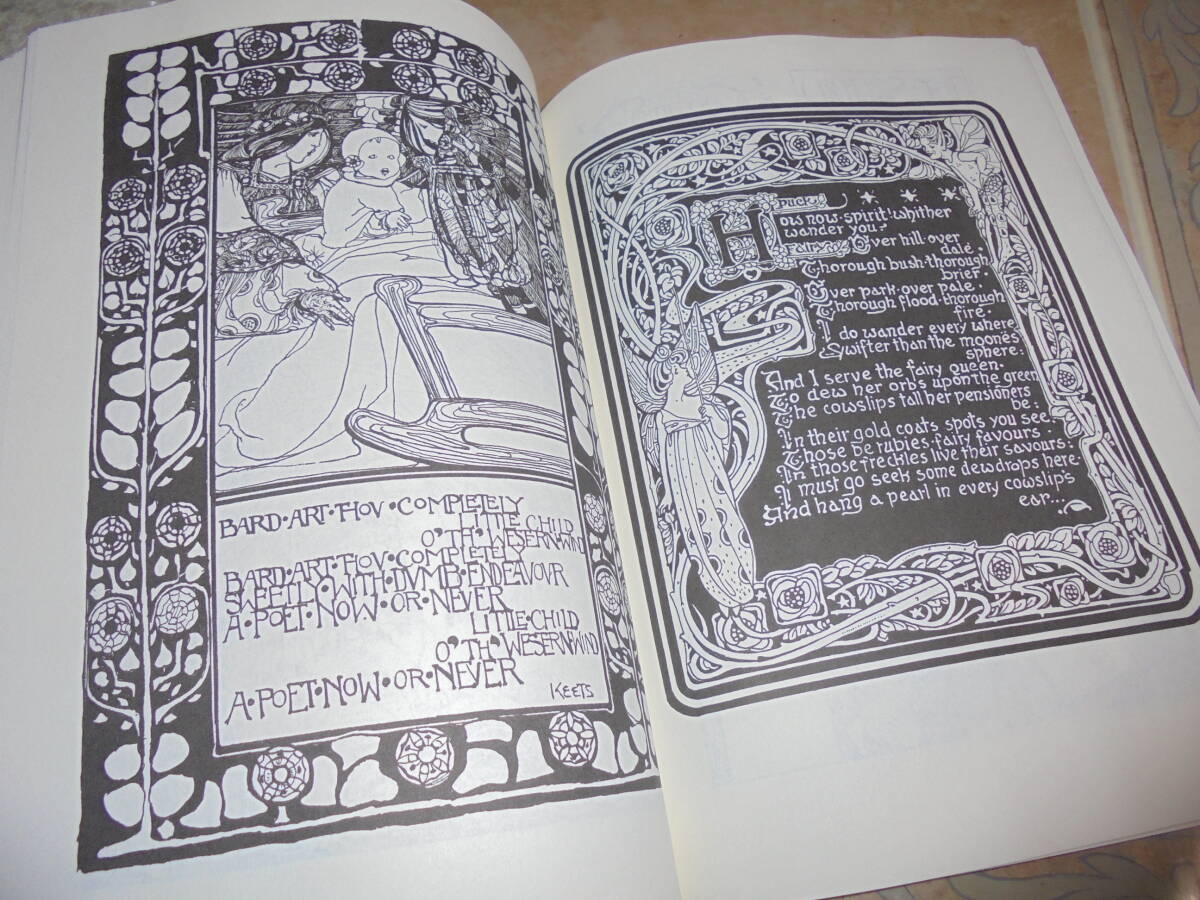 BARD·ART·THOV·COMPLETELY
LITTLE CHILD
O'·TH'·WESERN·WIND
BARD·ART·THOV·COMPLETELY
SWEETLY·WITH·DVMB·ENDEAVOVR
A·POET·NOW·OR·NEVER
LITTLE·CHILD
O'·TH'·WESERN·WIND
A·POET·NOW·OR·NEVER
KEETS
PUCK
How now·spirit! whither
wander you?
FAIRY Over hill·over
dale·
Thorough bush·thorough
brier·
Over park·over pale·
Thorough flood·thorough
fire·
I do wander every where
Swifter than the moone's
sphere:
And I serve the fairy queen·
To dew her orbs upon the green
The cowslips tall her pensioners
be:
In their gold coats spots you see·
Those be rubies·fairy favours·
In those freckles live their savours:
I must go seek some dewdrops here·
And hang a pearl in every cowslip's
ear...